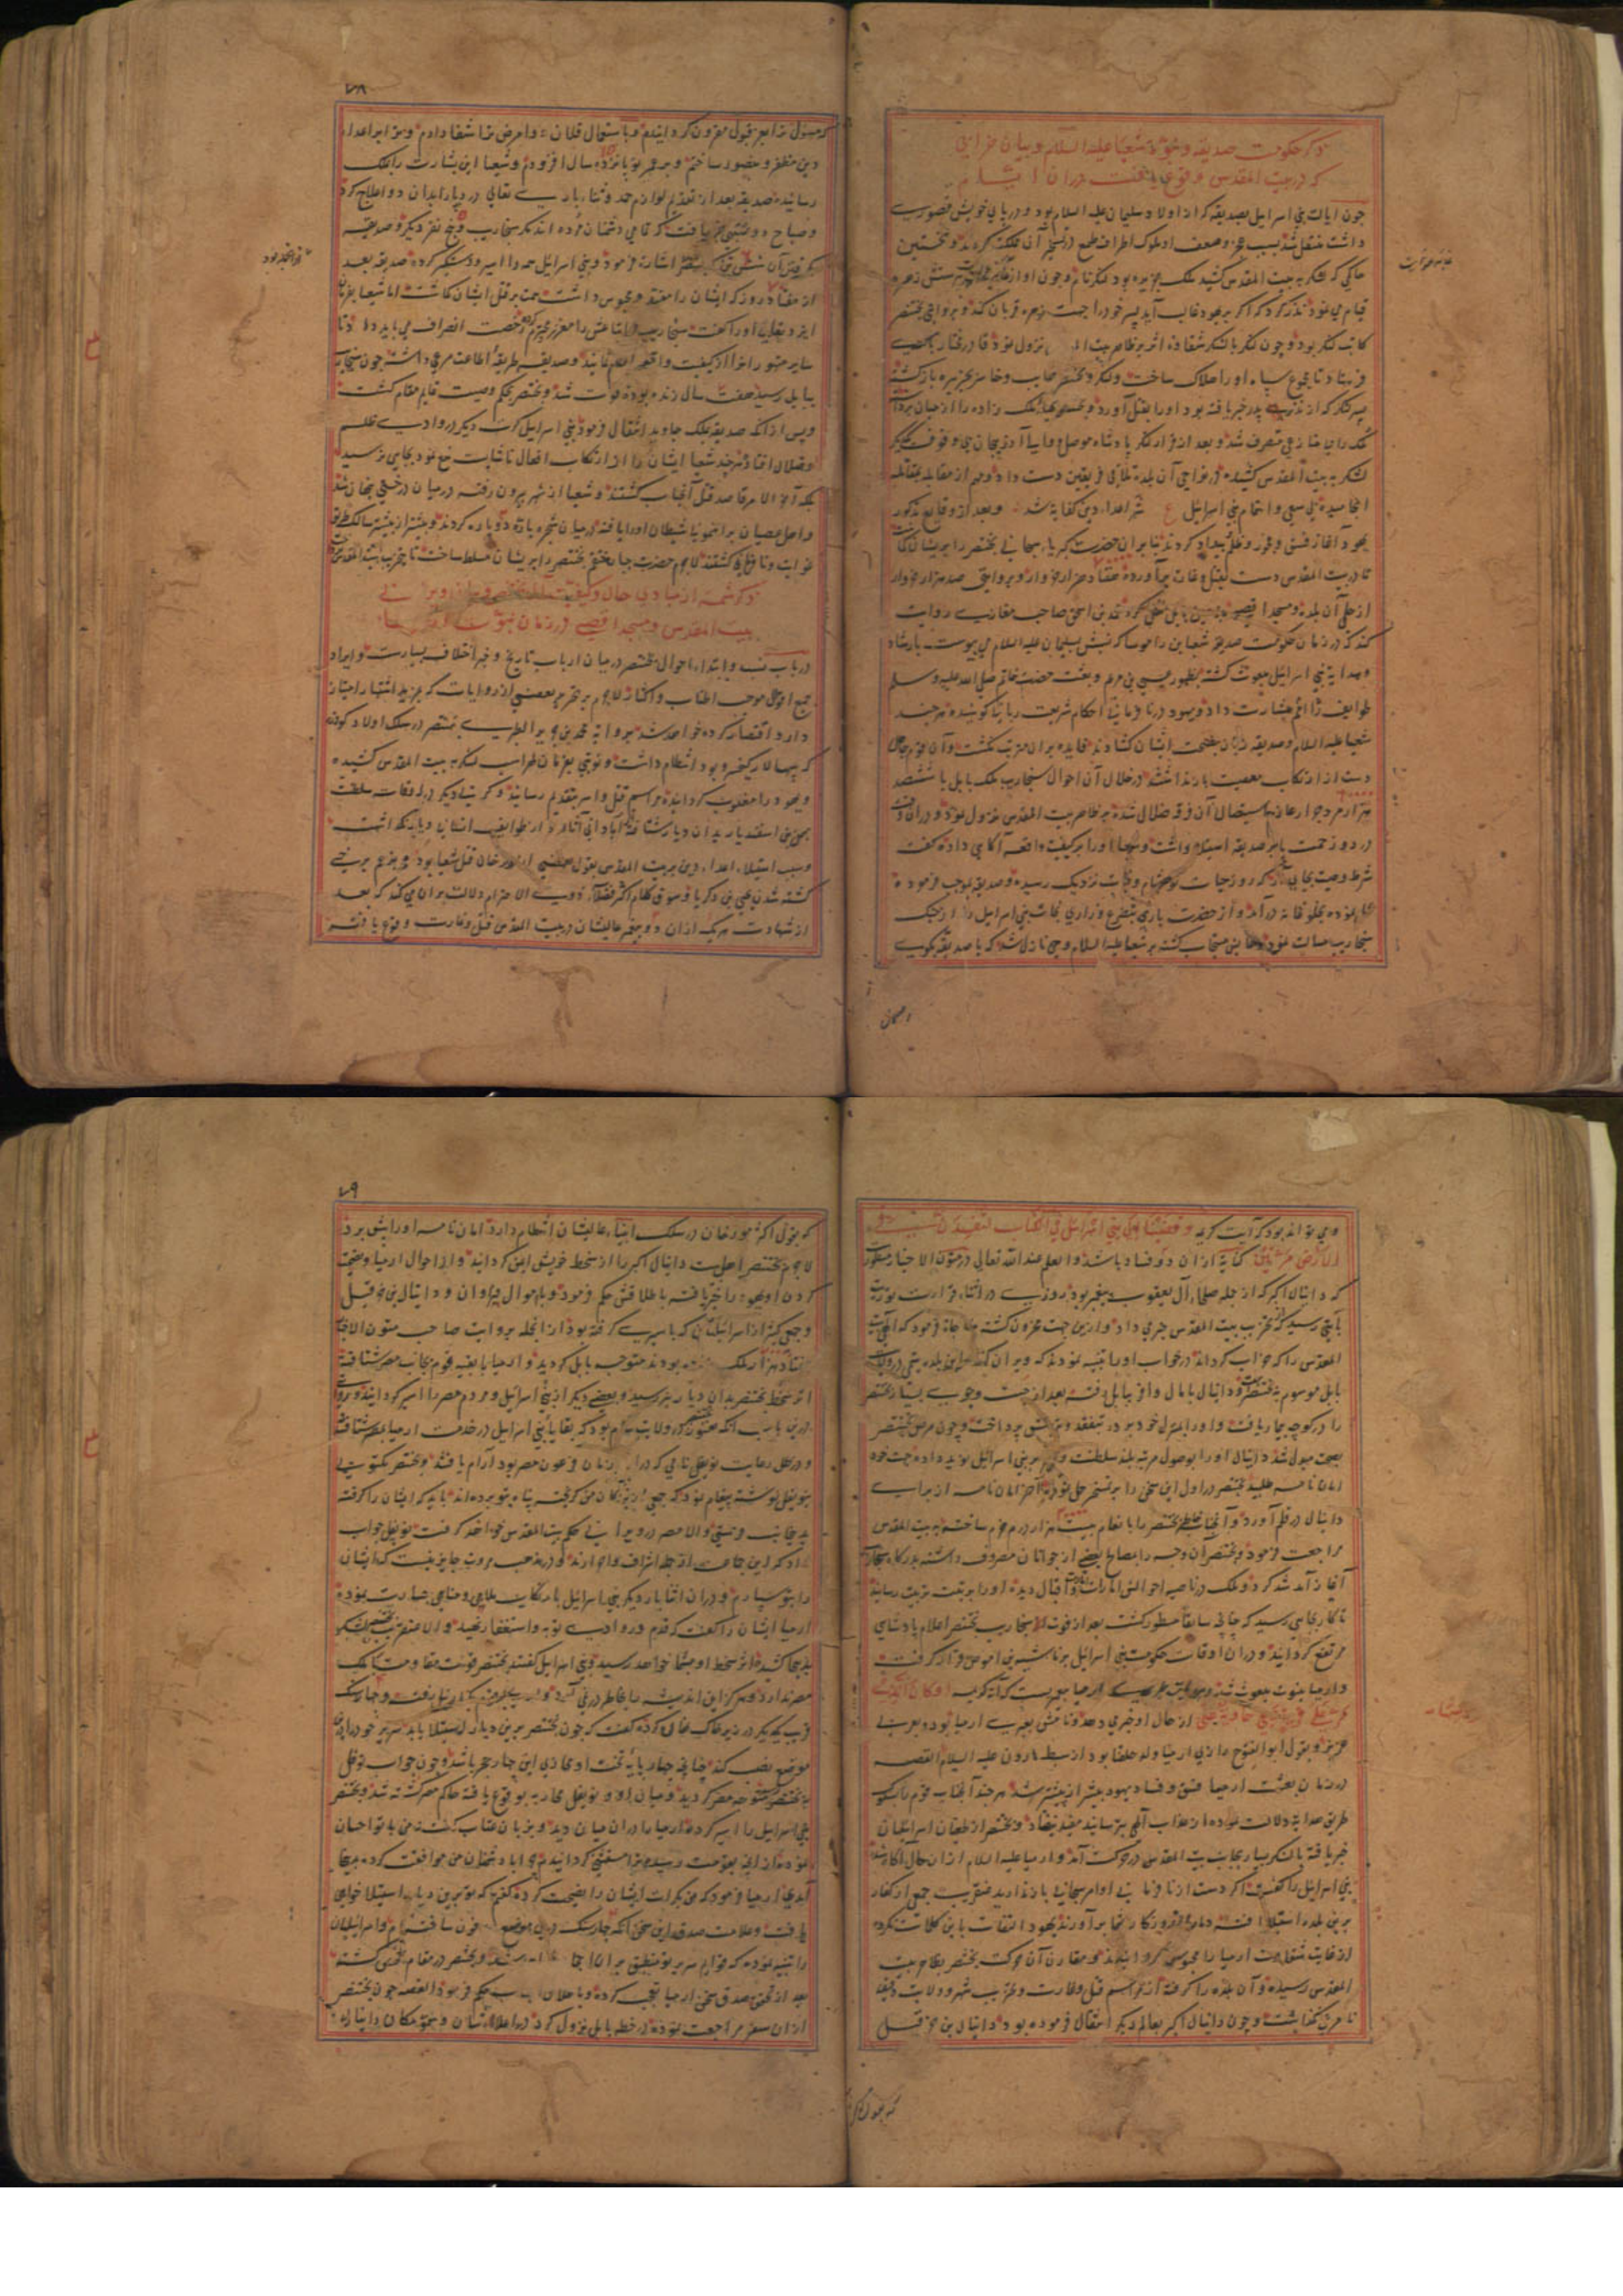 ذکر حکومت صدیقه و نبوت شعیا علیه السلام و بیان خرابی
که در بیت المقدس وقوع یافت در ان ایام
چون ایالت بنی اسرائیل بصدیقه که از اولاد سلیمان علیه السلام بود و در پای خویش قصوری
داشت منتقل شد بسبب عجز و ضعف او ملوک اطراف طمع در تسخیر آن مملکت کردند و نخستین
حاکمی که لشکر به بیت المقدس کشید ملک جزیره بود لنکر نام و چون او از پرستش زهره
قیام می نمود نذر کرد که اگر بر یهود غالب آید پسر خود را جهت زهره قربان کند و بروایتی بختنصر
کاتب لنکر بود و چون لنکر با لشکر شقاوة اثر بر ظاهر بیت نزول نمود قادر مختار
فرستاد تا مجموع سپاه او را هلاک ساخت و لنکر و بختنصر خایب و خاسر بجزیره باز کشته
پسر لنکر که از نذر پدر خبر یافته بود او را بقتل آورد و ملک زاده را از میان برداشته
ملک را بی منازعی متصرف شد و بعد از فرار لنکر پادشاه موصل و والی آذربیجان
لشکر به بیت المقدس کشیده در نواحی آن بلده تلاقی فریقین دست داد و مهم از مقابله بمقاتله
انجامیده بی سعی و اهتمام بنی اسرائیل شر اعداء دین کفایة شد و بعد از وقایع مذکور
یهود آغاز فسق و فجور و ظلم بیداد کردند بنا بر ان حضرت کبریاء سبحانی بختنصر را بریشان
تا در بیت المقدس دست بقتل و غارت برآورده هفتاد هزار خروار و بروایتی صد هزار خروار
از حلی آن بلده و مسجد اقصی بزمین بابل نقل کرد محمد بن اسحق صاحب مغازی روایت
کند که در زمان حکومت صدیقه شعیا بن راموسا که نسبش بسلیمان علیه السلام می پیوست بارشاد
و هدایة بنی اسرائیل مبعوث کشته بظهور عیسی بن مریم و بعثت حضرت خاتم صلی الله علیه و سلم
طوایف را بشارت داد و یهود در نافرمانی احکام شریعت ربانی کوشیده هر چند
شعیا علیه السلام و صدیقه زبان بنصیحت ایشان کشادند فایده بر ان مترتب نکشت و آن قوم جاهل
دست از ارتکاب معصیت باز نداشتند در خلال آن احوال سنجاریب ملک بابل با ششصد
هزار مرد جرار عازم استیصال آن فرقه ضلال شده بر ظاهر بیت المقدس نزول نمود و در ان وقت
درد و زحمت بر صدیقه استیلا داشت و شعیا او را بر کیفیت واقعه آکاهی داده کفت
شرط وصیت بجای آر که روز حیات تو بشام وفات نزدیک رسیده و صدیقه بموجب فرموده
عمل نموده بخلوتخانه درآمد و از حضرت باری بتضرع و زاری نجات بنی اسرائیل را از جنک
سنجاریب مسالت نمود دعایش مستجاب کشته بر شعیا علیه السلام وحی نازل شد که با صدیقه بکوی
۷۸
که مسئول ترا بعز قبول مقرون کردانیدم و باستعمال فلان دوا مرض ترا شفا دادم و بر اعداء
دین مظفر و منصور ساختم و بر عمر تو پانزده سال افزودم و شعیا این بشارت را بملک
رسانید صدیقه بعد از تقدیم لوازم حمد و ثناء باری تعالی در پا را بدان دوا علاج کرد
و صباح دو منهی خبر یافت که تمامی دشمنان مرده اند مکر سنجاریب و پنج نفر دیکر و صدیقه
بکرفتن آن شش تن اشارة فرمود و بنی اسرائیل همه را اسیر و دستکیر کرده صدیقه بعد
از هفتاد روز که ایشان را مقید و محبوس داشت همت بر قتل ایشان کماشت اما شعیا بفرمان
ایزد تعالی او را کفت سنجاریب و اتباعش را معزز و محترم رخصت انصراف می باید داد تا
سایر متهوران را از کیفیت واقعه اعلام نمایند و صدیقه طریقه اطاعت مرعی داشته چون سنجاریب
ببابل رسید هفت سال زنده بوده فوت شد و بختنصر بحکم وصیت قایم مقام کشت
و پس از آنکه صدیقه بملک جاوید انتقال فرمود بنی اسرائیل کرت دیکر در وادی ظلم
و ضلال افتاد هر چند شعیا ایشان را از ارتکاب افعال ناشایست منع نمود بجایی نرسید
بلکه آخر الامر قاصد قتل آنجناب کشتند و شعیا از شهر بیرون رفته در میان درختی پنهان شد
و اهل عصیان براهنمونی شیطان او را یافته در میان شجره پاره دو پاره کردند و بیشتر از پیشتر سالک طریق
غوایت و نافرمانی کشتند لاجرم حضرت جبار منتقم بختنصر را بریشان مسلط ساخت تا بتخریب بیت المقدس
ذکر شمه از مبادی حال و کیفیت بختنصر و بیان ویرانی
بیت المقدس و مسجد اقصی در زمان نبوت
در باب نسب و ابتداء احوال بختنصر در میان ارباب تاریخ و خبر اختلاف بسیارست و ایراد
جمیع اقوال موجب اطناب و اکثار لاجرم بر تحریر بعضی از روایات که بمزید اشتهار امتیاز
دارد اقتصار کرده خواهد شد بروایة محمد بن جریر الطبری بختنصر در سلک اولاد کودرز
که سپهسالار کیخسرو بود انتظام داشت و نوبتی بفرمان لهراسب لشکر به بیت المقدس کشیده
و یهود را مغلوب کردانیده مراسم قتل و اسر بتقدیم رسانید و کرت دیکر در اوقات سلطنت
بهمن بن اسفندیار بدان دیار شتافته آبادانی آثار و از طوایف انسانی دیاری نکذاشت
و سبب استیلاء اعداء دین بر بیت المقدس بقول بعضی از مورخان قتل شعیا بود و بزعم برخی
کشته شدن یحیی بن زکریا و سوق کلام اکثر فضلاء ذوی الاحترام دلالت بر ان می کند که بعد
از شهادت هر یک از ان دو پیغمبر عالیشان در بیت المقدس قتل و غارت وقوع یافته
و می تواند بود که آیت کریمه و قضینا الی بنی اسرائیل فی الکتاب لتفسدن فی
الارض مرتین کنایة از ان دو فساد باشد و العلم عند الله تعالی در متون الاخبار مسطور
که دانیال اکبر که از جمله صلحاء آل یعقوب پیغمبر بود روزی در اثناء قرائت توریت
بآیتی رسید که از تخریب بیت المقدس خبر می داد و ازین جهت محزون کشته مناجات فرمود که الهی بیت
المقدس را که خراب کرداند در خواب او را تنبیه نمودند که ویران کننده این بلده یتیمی در ولایت
بابل موسوم به بختنصر و دانیال با مال وافر ببابل رفته بعد از جست و جوی بسیار بختنصر
را در کوچه بیمار یافت و او را بمنزل خود برد در تفقد و پرسش پرداخت و چون مرض بختنصر
بصحت مبدل شد دانیال او را بوصول مرتبه بلند سلطنت بر بنی اسرائیل نوید داده جهت خود
امان نامه طلبید بختنصر در اول این سخن را بر تسخر حمل نمود آخر امان نامه از برای
دانیال در قلم آورد و آنجناب بختنصر را بانعام بیست هزار درم خرم ساخته به بیت المقدس
مراجعت فرمود و بختنصر آن وجه را بمصالح بعضی از جوانان مصروف داشته بدرکاه سنجاریب
آغاز آمد شد کرد و ملک در ناصیه احوالش امارات اقبال دیده او را بتربیت رسانید
تا کار بجایی رسید که چنانچه سابقا مسطور کشت بعد از فوت سنجاریب بختنصر اعلام پادشاهی
مرتفع کردانید و در ان اوقات حکومت بنی اسرائیل بر ناشیه بن اموص قرار کرفت
و ارمیا بنبوت مبعوث شد بروایت طبری ارمیا پیغمبریست که آیة کریمه او کالذی
مر علی قریة و هی خاویة علی از حال او خبر می دهد و نامش بعبری ارمیا بود و بعربی
عزیر و بقول ابوالفتوح رازی ارمیا ولد حلقیا بود از سبط هارون علیه السلام القصه
در زمان بعثت ارمیا فسق و فساد یهود بیشتر از پیشتر شد هر چند آنجناب قوم را بسلوک
طریق هدایة دلالت نموده از عذاب الهی بترسانید مفید نیفتاد و بختنصر از طغیان اسرائیلیان
خبر یافته با لشکر بسیار بجانب بیت المقدس در حرکت آمد و ارمیا علیه السلام از ان حال آکاه شده
بنی اسرائیل را کفت اکر دست از نافرمانی اوامر سبحانی باز ندارید عنقریب جمعی از کفار
برین بلده استیلا یافته دمار از روزکار شما برآورند یهود التفات باین کلمات نکرده
از غایت شقاوت ارمیا را محبوس کردانیدند و مقارن آن حرکت بختنصر بظاهر بیت
المقدس رسیده و آن بلده را کرفته از مراسم قتل و غارت و تخریب شهر و ولایت دقیقه
نامرعی نکذاشت و چون دانیال اکبر بعالم دیکر انتقال فرموده بود دانیال بن حزقیل
۷۹
که بقول اکثر مورخان در سلک انبیاء عالیشان انتظام دارد امان نامه او را پیش برد
لاجرم بختنصر اهل بیت دانیال اکبر را از سخط خویش ایمن کردانید و از احوال ارمیا و نصیحت
کردن او یهود را خبر یافته باطلاقش حکم فرمود و با اموال فراوان و دانیال بن حزقیل
و جمعی کثیر از اسرائیلیان که باسیری کرفته بود از انجمله بروایت صاحب متون الاخبار
هفتاد هزار ملک زاده بودند متوجه بابل کردید و ارمیا با بقیه قوم بجانب مصر شتافته
اثر سخط بختنصر بدان دیار نیز رسید و بعضی دیکر از بنی اسرائیل و مردم مصر را اسیر کردانید
درین باب آنکه بختنصر در ولایت شام بود که بقایا بنی اسرائیل در خدمت ارمیا بمصر شتافته
و در ظل رعایت نوفل نامی که در ان زمان فرعون مصر بود آرام یافتند و بختنصر مکتوبی
بنوفل نوشته پیغام نمود که جمعی از بندکان من کریخته پناه بتو برده اند باید که ایشان را کرفته
بدین جانب فرستی و الا مصر در ویرانی حکم بیت المقدس خواهد کرفت نوفل جواب
داد که این جماعت از جمله اشراف و احرارند و در مذهب مروت جایز نیست که ایشان
را بتو سپارم و در ان اثنا بار دیکر بنی اسرائیل بارتکاب ملاهی و مناهی جسارت نموده
ارمیا ایشان را کفت که قدم در وادی توبه و استغفار نهید و الا عنقریب بختنصر لشکر
بدینجا کشیده اثر سخط او بشما خواهد رسید و بنی اسرائیل کفتند بختنصر قوت مقاومت با ملک
مصر ندارد و هرکز این اندیشه را بخاطر در نمی آورد و ارمیا رفته و چهار سنک
قریب بیکدیکر در زیر خاک پنهان کرده کفت که چون بختنصر برین دیار استیلا یابد سریر خود را درین
موضع نصب کند چنانچه چهار پایه تخت او محاذی این چهار حجر باشد و چون جواب نوفل
به بختنصر رسید متوجه مصر کردید و میان او و نوفل محاربه بوقوع یافته حاکم مصر کشته شد و بختنصر
بنی اسرائیل را اسیر کرده ارمیا را در ان میان دید و بزبان عتاب کفت که من با تو احسان
نموده از آنچه بقومت رسید ترا مستثنی کردانیدم چرا با دشمنان من موافقت کرده بدینجا
آمدی ارمیا فرمود که من بکرات ایشان را نصیحت کرده کفتم که تو برین دیار استیلا خواهی
یافت و علامت صدق این سخن آنکه چهار سنک درین موضع مدفون ساختم و اسرائیلیان
را تنبیه نموده که قوایم سریر تو منطبق بر ان احجار خواهد شد و بختنصر در مقام تفحص کشته
بعد از تحقق صدق سخن ارمیا تعجب کرده و باطلاق حکم فرمود القصه چون بختنصر
از ان سفر مراجعت نموده در خطه بابل نزول کرد در اعلاء شان و سمو مکان دانیال